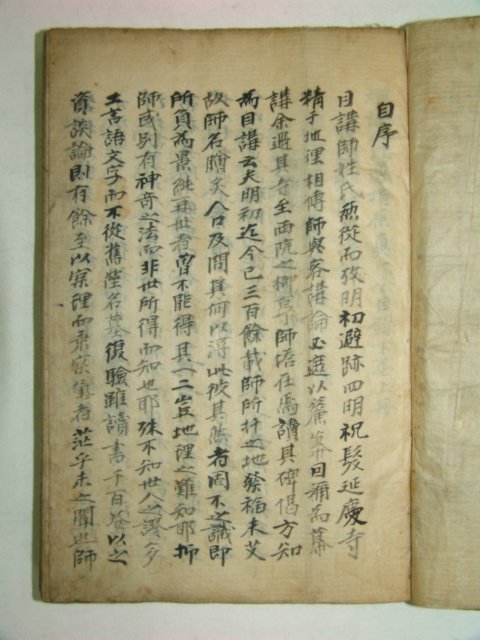 自序
目講師姓氏無從而攷明初避跡四明祝髮延慶寺
精于地理相傳師與客講論必選以簾幕目痛為幕
講余過其寺至西院之柳亭師塔在焉讀其碑偈方知
為目講云夫明初迄今已三百餘載師所扦之地發福未艾
故師名膾炙人口及問其何以得此彼其然者固不之識即
所負為景純再世者曾不能得其一二豈地理之難知耶抑
師或別有神奇之法而非世所得而知也耶殊不知世人之謬多
工言語文字而不從舊塋名墓復驗雖讀書千百卷以之
資談論則有餘至以案理而兼案氣者茫乎未之聞也師